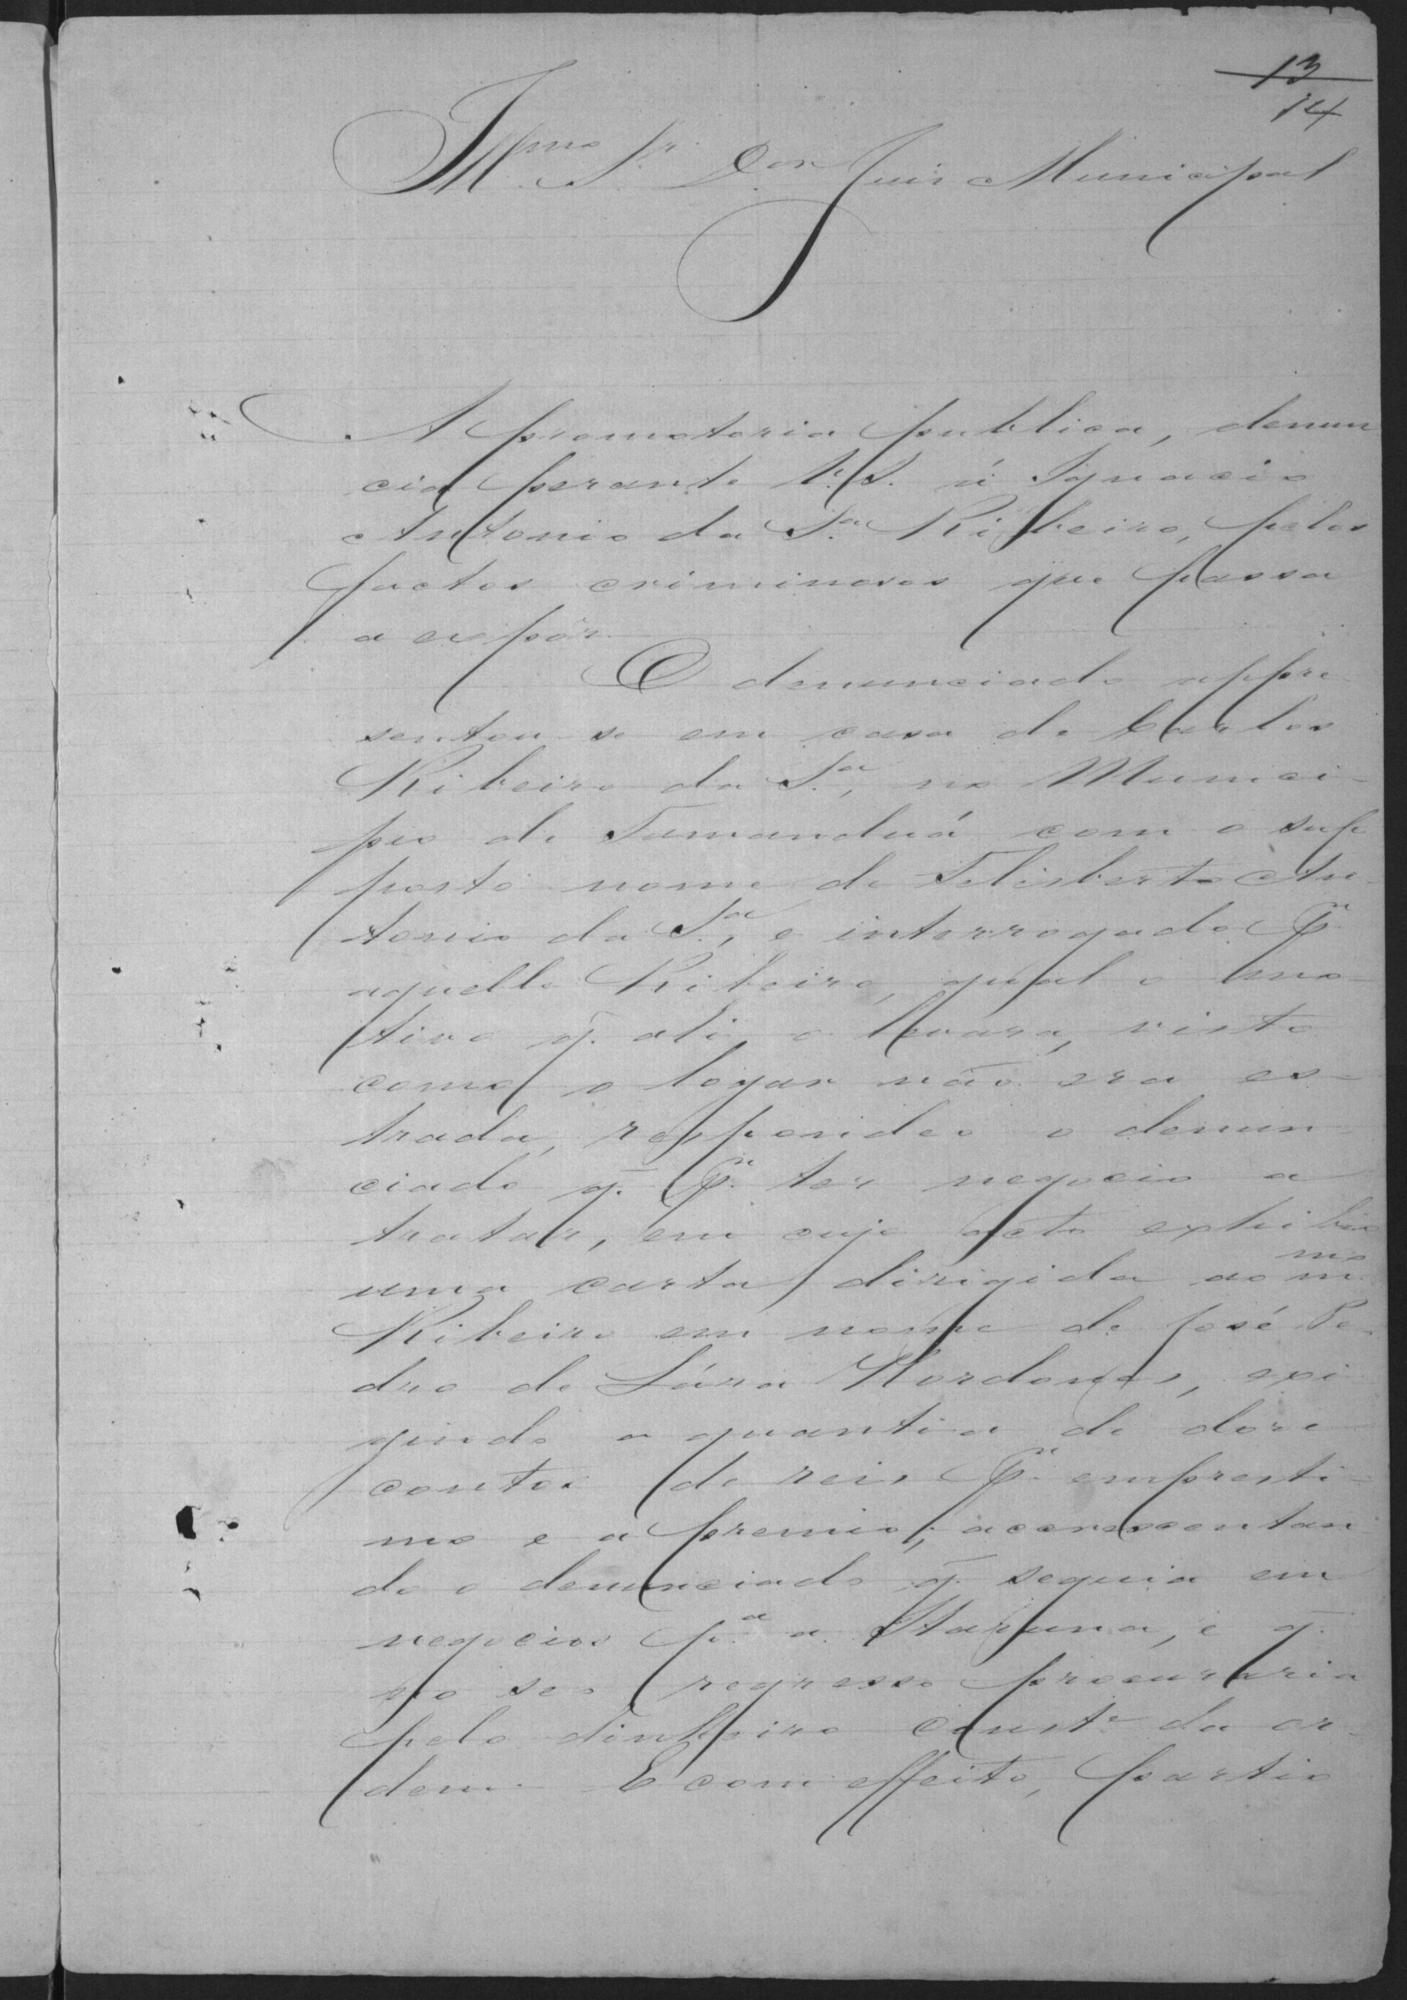 13
14
Illmo Sr. Dor Juis Municipal
A promotoria publica, denun
cia perante V. S. á Ignacio
Antonio da Sa Ribeiro, pelos
factos criminosos que passa
a expôr.
O denunciado appre
sentou se em casa de Carlos
Ribeiro da Sa, no Munici-
pio de Tamanduá com o sup
posto nome de Felisberto An-
tonio da Sa, e interrogado Pr
aquelle Ribeiro, qual o mo-
tivo q. ali o levara, visto
como o logar não era es-
trada, respondeo o denun-
ciado q. Pr ter negocio a
tratar, em cujo acto exhibio
uma carta dirigida ao mmo
Ribeiro em nome de José Pe-
dro de Lára Hordones, exi
gindo a quantia de dose
contos de reis Pr empresti-
mo e a premio; accrescentan
do o denunciado q. seguia em
negocios pa a Itaúna, e q.
no seo regresso procuraria
pelo dinheiro conste da or-
dem. E com effeito, partio